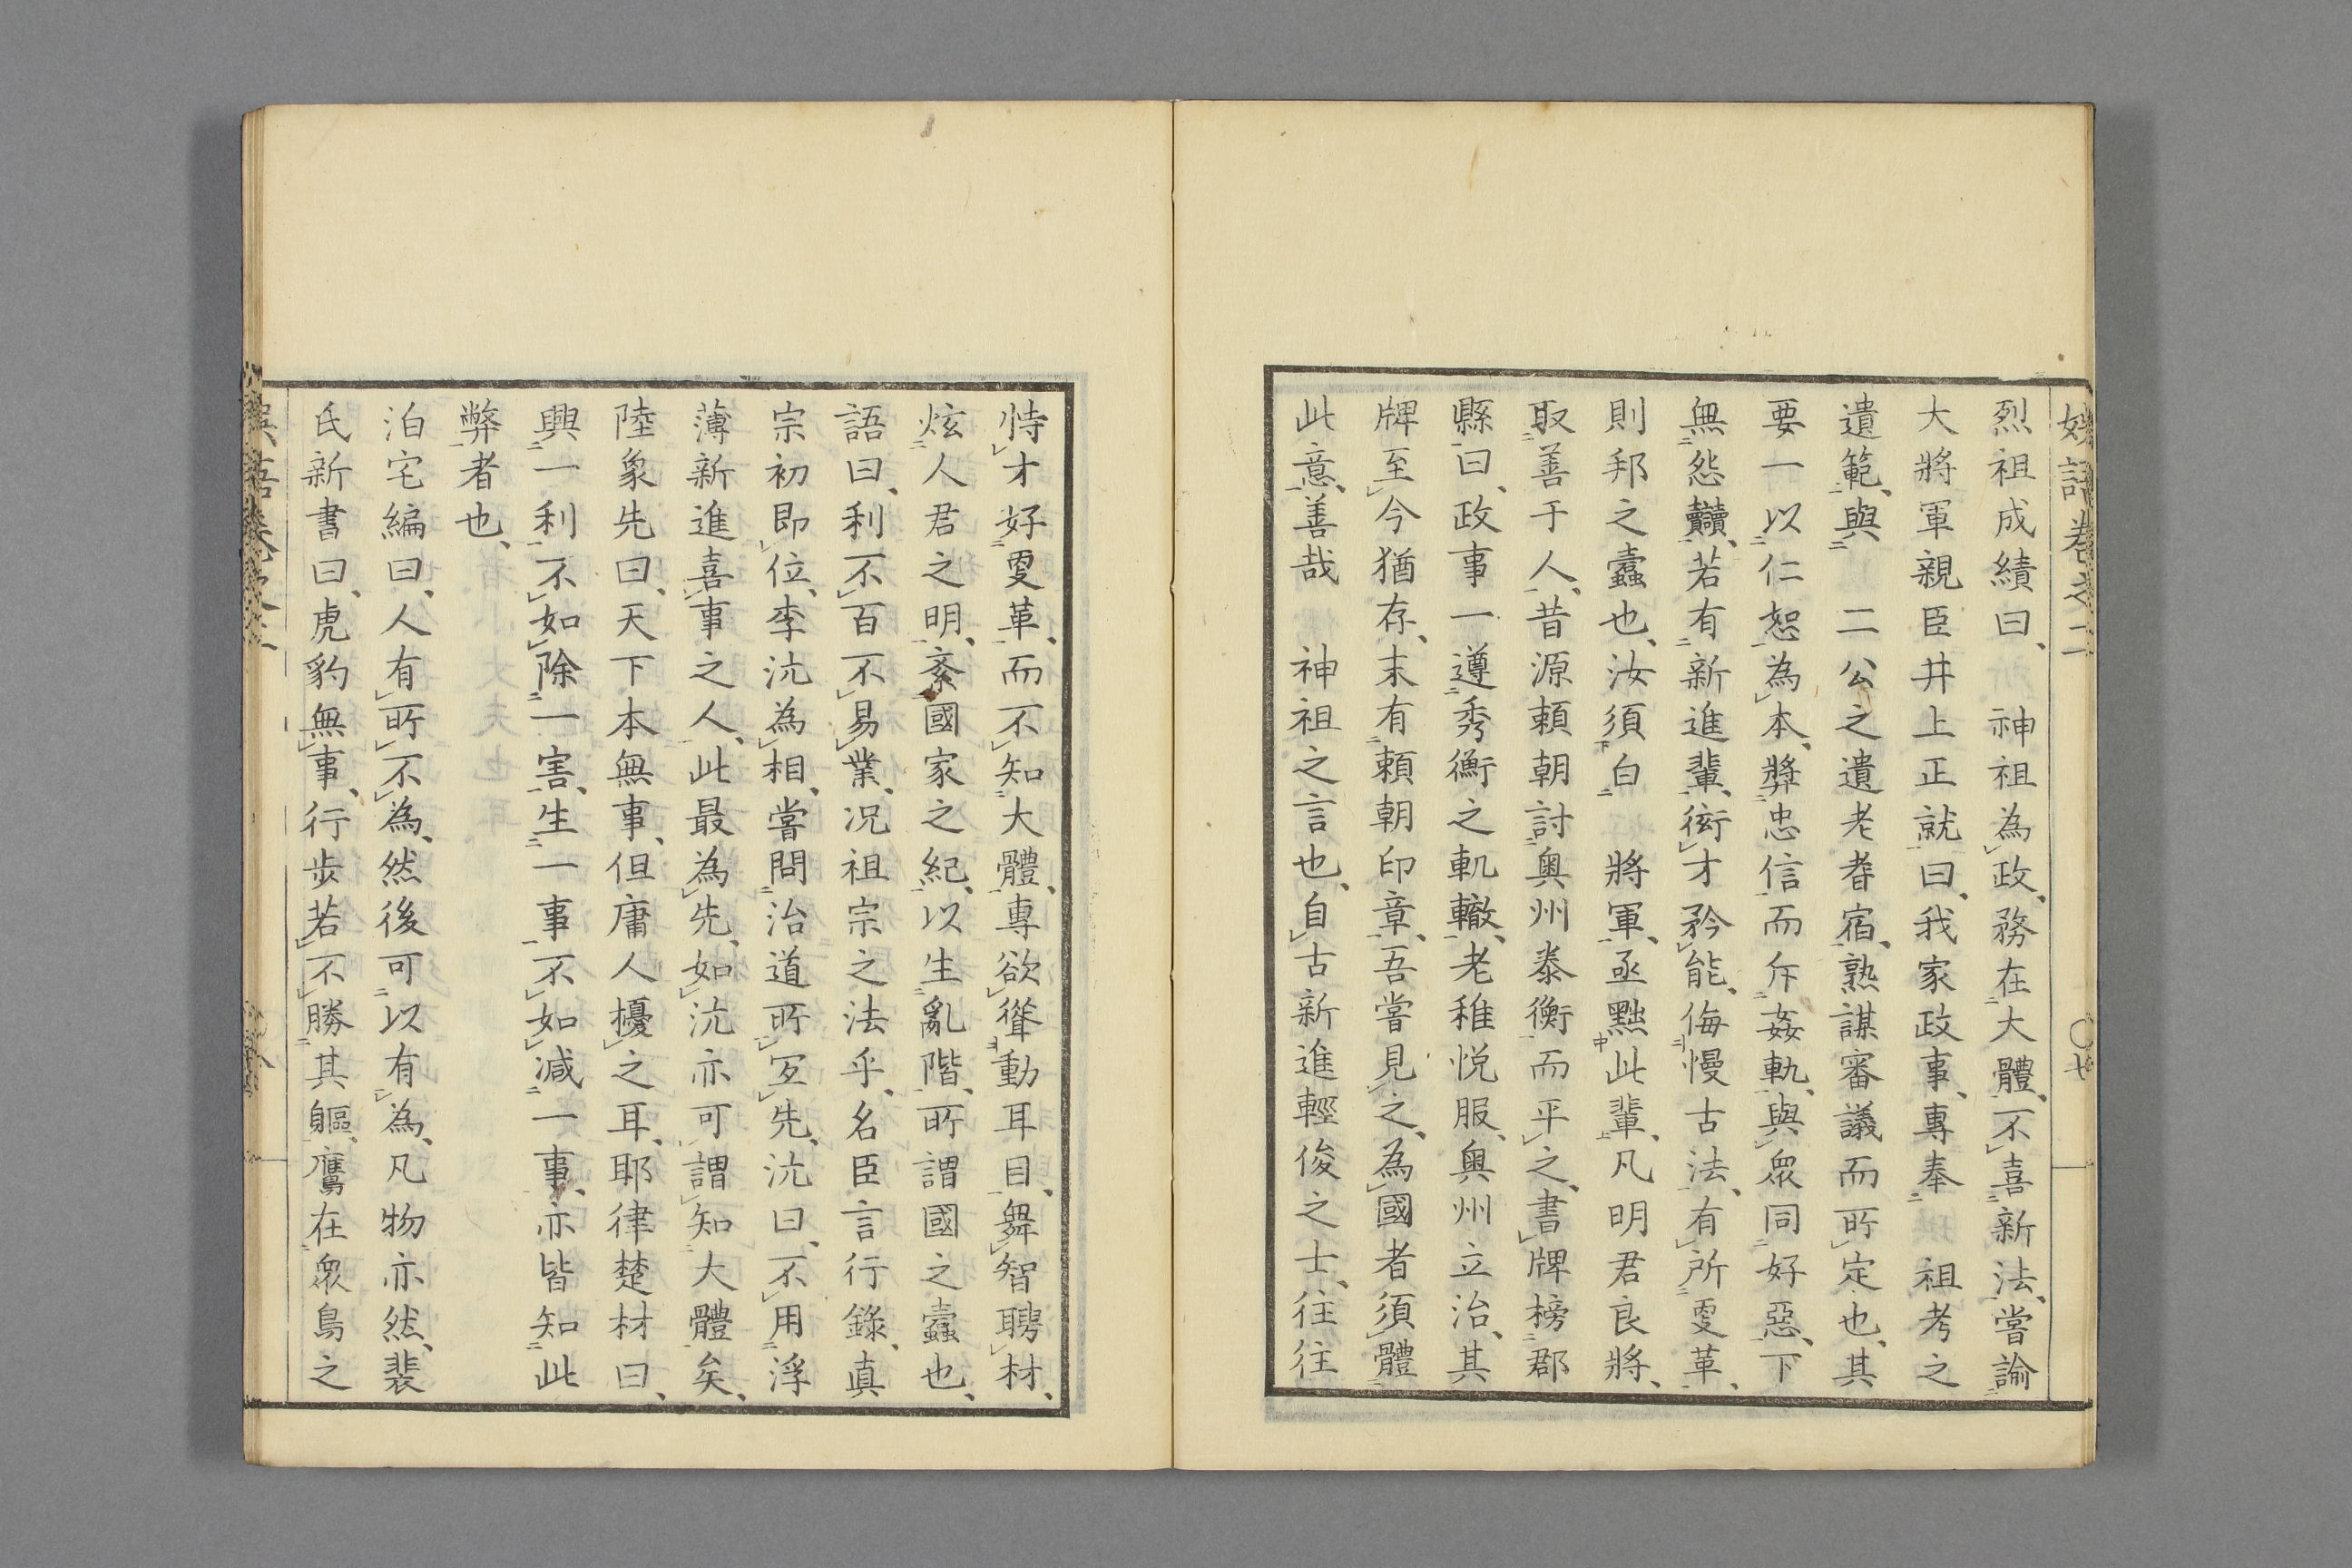 烈祖成績曰、　神祖為政、務在大體、不喜新法、嘗諭
大將軍親臣井上正就曰、我家政事、專奉　祖考之
遺範、與　二公之遺老耆宿、熟謀審議而所定也、其
要一以仁恕為本、奬忠信而斥姦軌、與衆同好惡、下
無怨讟、若有新進輩、衒才矜能、侮慢古法、有所叓革、
則邦之蠹也、汝須白　將軍、亟黜此輩、凡明君良將、
取善于人、昔源賴朝討奥州泰衡而平之、書牌榜郡
縣曰、政事一遵秀衡之軌轍、老稚悦服、奥州立治、其
牌至今猶存、末有賴朝印章、吾嘗見之、為國者須體
此意、善哉　神祖之言也、自古新進輕俊之士、往往
恃才好叓革、而不知大體、專欲聳動耳目、舞智騁材、
炫人君之明、紊國家之紀、以生亂階、所謂國之蠹也、
語曰、利不百不易業、况祖宗之法乎、名臣言行錄、真
宗初即位、李沆為相、嘗問治道所宜先、沆曰、不用浮
薄新進喜事之人、此最為先、如沆亦可謂知大體矣、
陸象先曰、天下本無事、但庸人擾之耳、耶律楚材曰、
興一利、不如除一害、生一事、不如減一事、亦皆知此
弊者也、
泊宅編曰、人有所不為、然後可以有為、凡物亦然、裴
氏新書曰、虎豹無事、行步若不勝其軀、鷹在衆鳥之